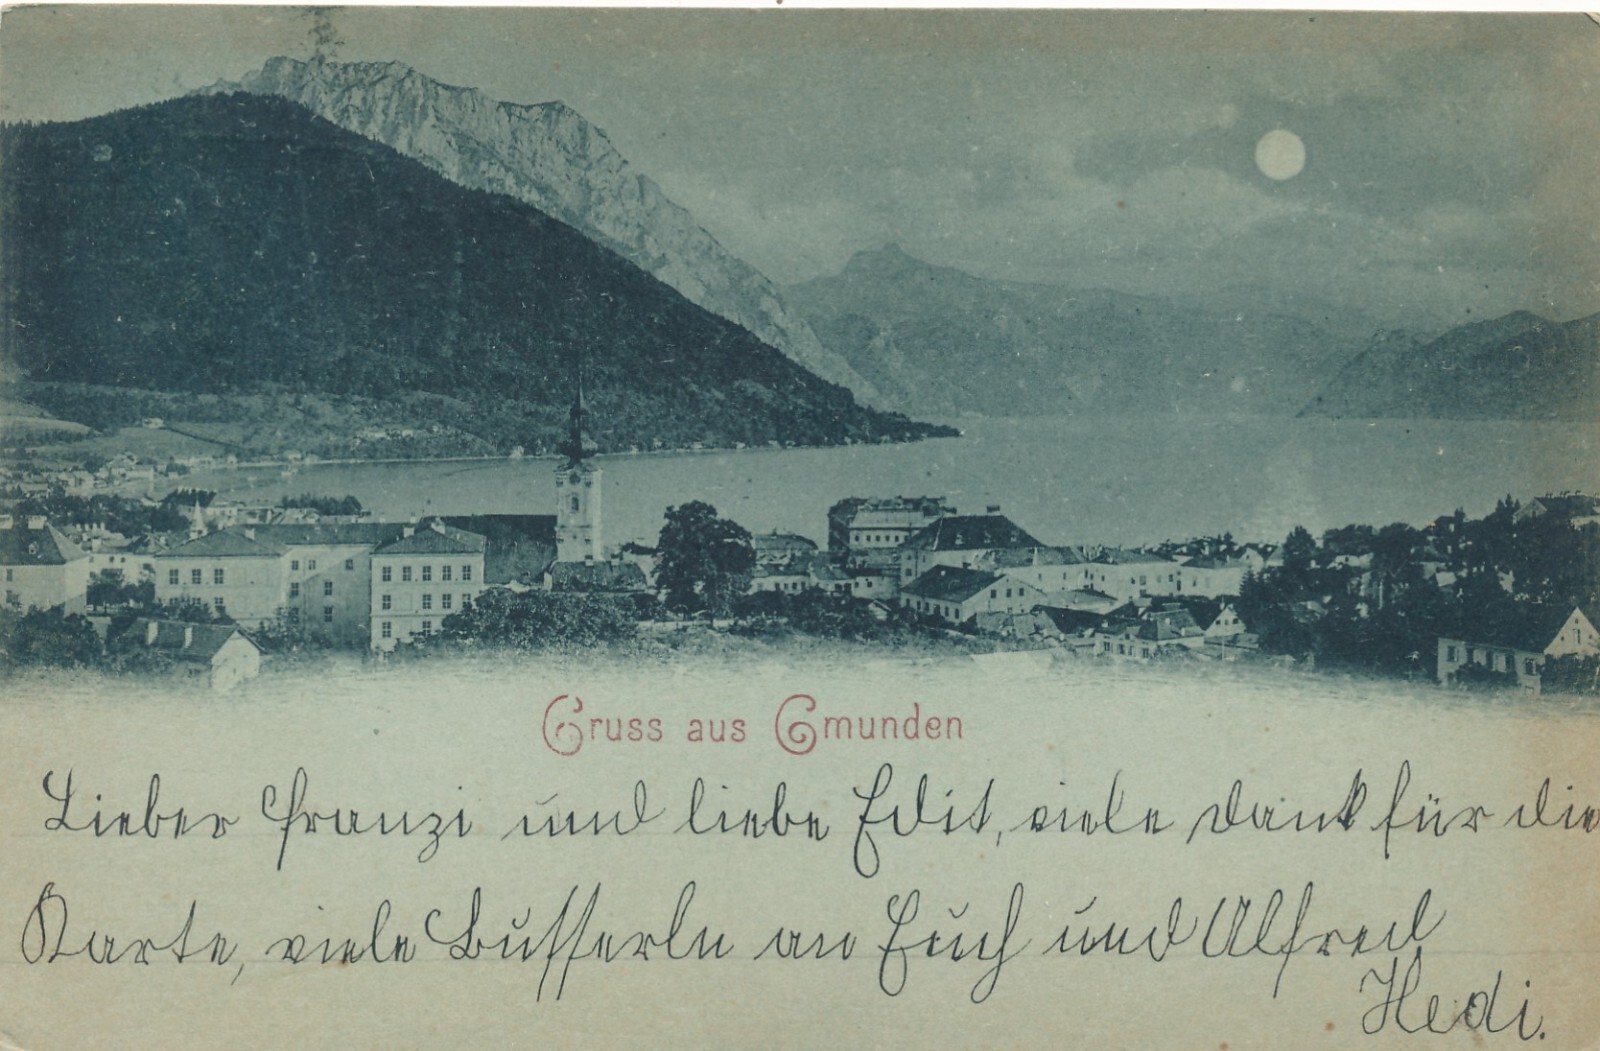 Gruss aus Gmunden
Lieber Franzi und liebe Edit, viele Dank für die
Karte, viele Busserln an Euch und Alfred
Hedi.